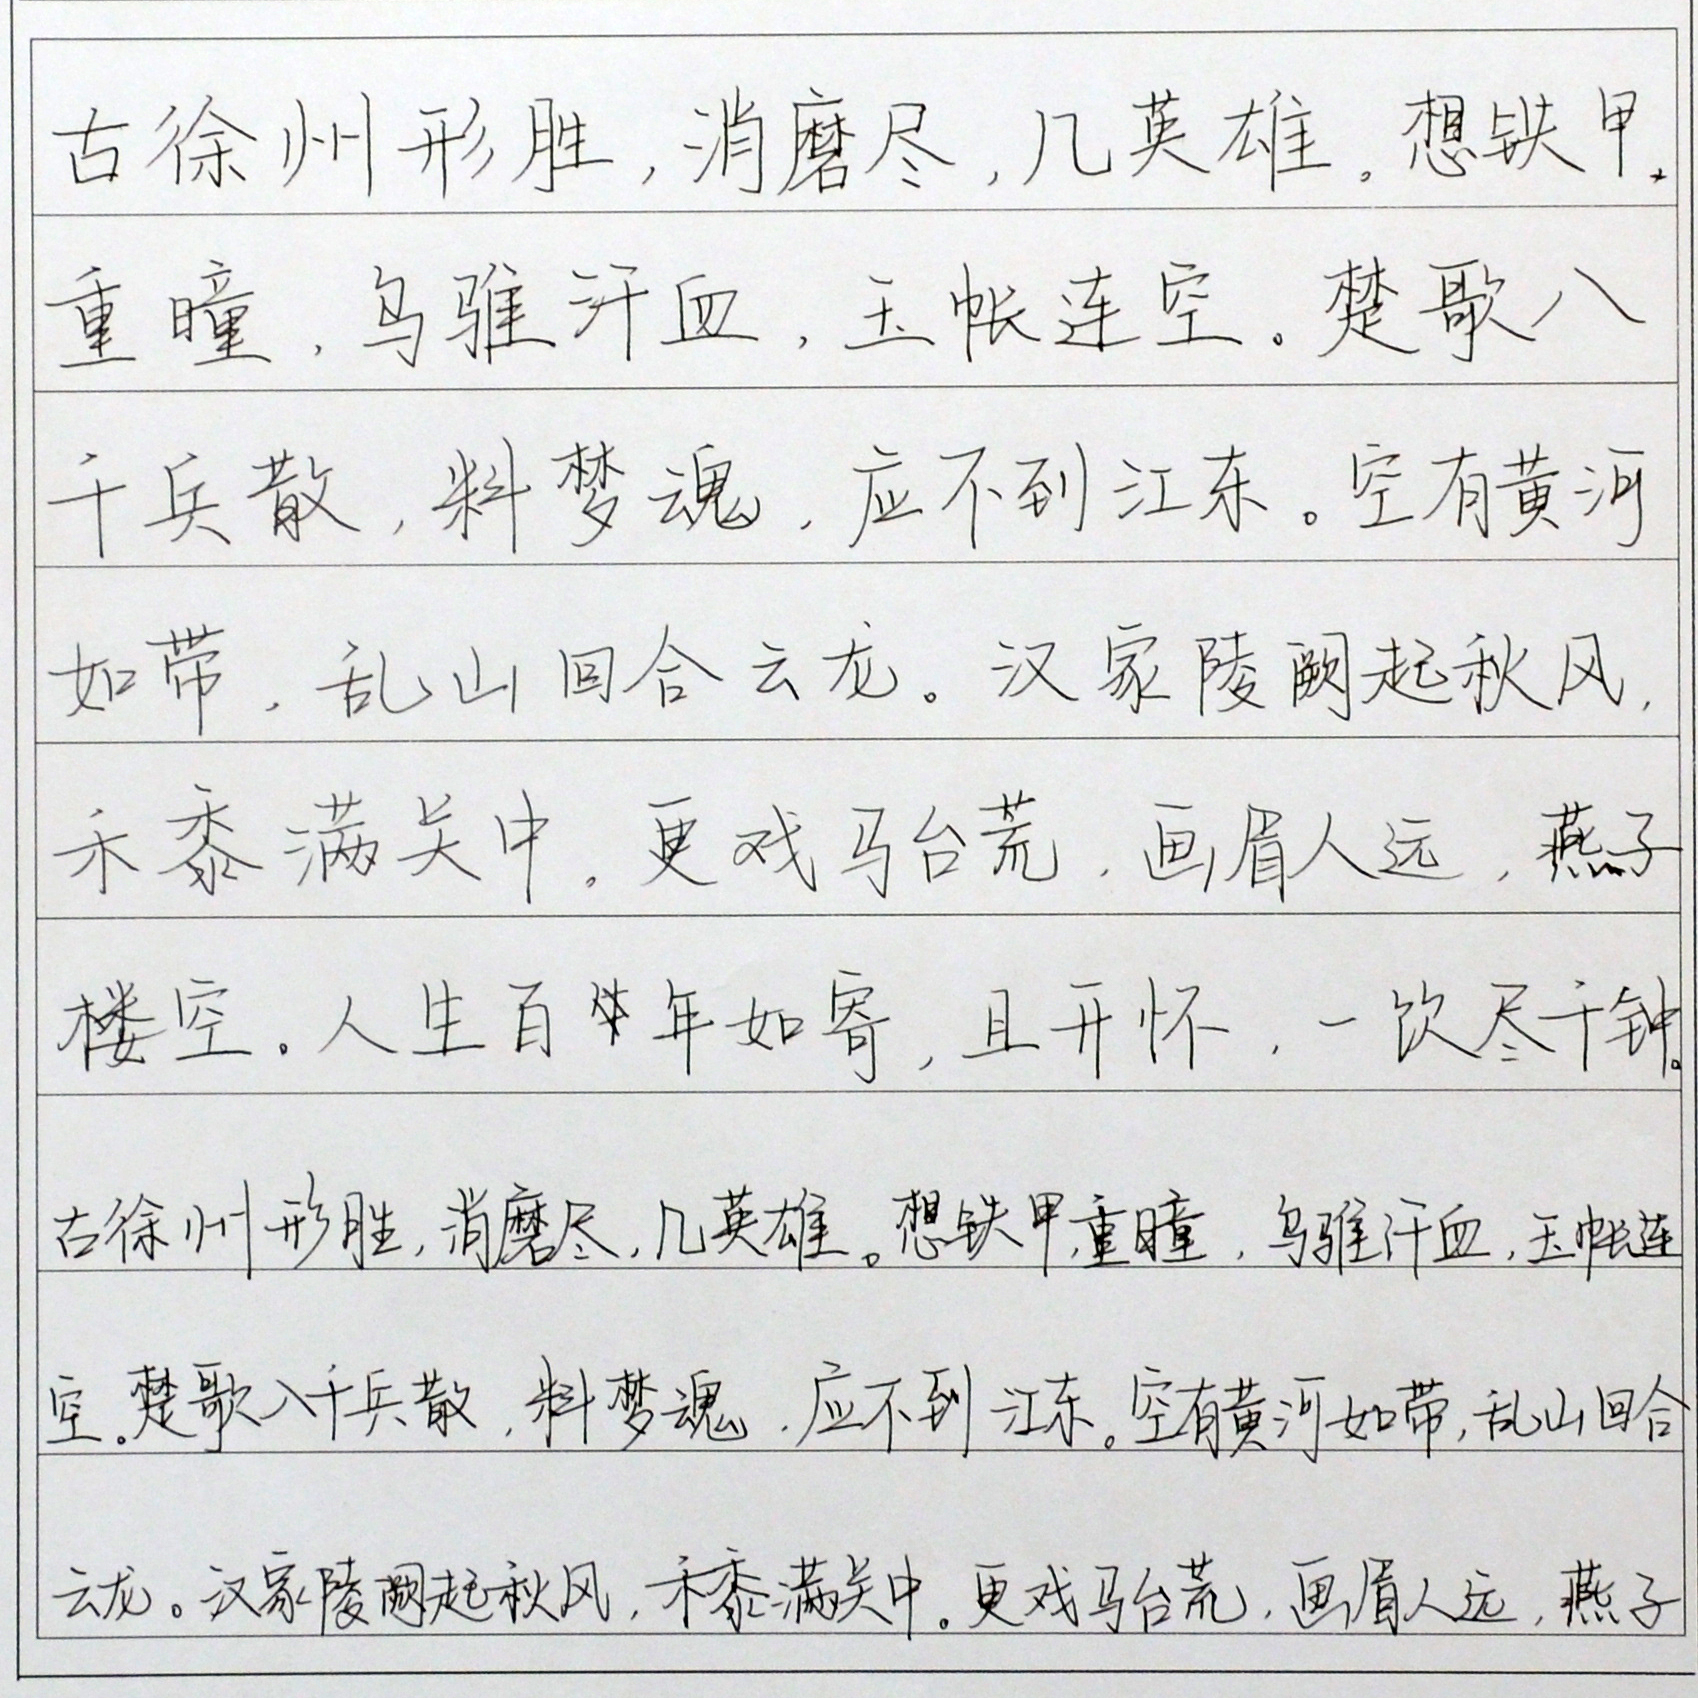 古徐州形胜，消磨尽，几英雄。想铁甲，
重瞳，乌骓汗血，玉帐连空。楚歌八
千兵散，料梦魂，应不到江东。空有黄河
如带，乱山回合云龙。汉家陵阙起秋风，
禾黍满关中。更戏马台荒，画眉人远，燕子
楼空。人生百年如寄，且开怀，一饮尽千钟。
古徐州形胜，消磨尽，几英雄。想铁甲，重瞳，乌骓汗血，玉帐连
空。楚歌八千兵散，料梦魂，应不到江东。空有黄河如带，乱山回合
云龙。汉家陵阙起秋风，禾黍满关中。更戏马台荒，画眉人远，燕子